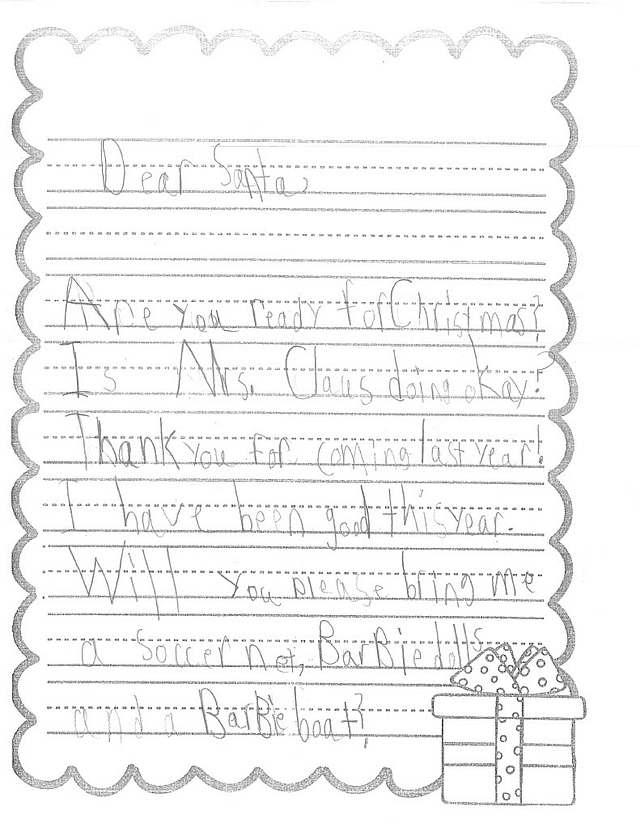 Dear Santa,
Are you ready for Christmas?
Is Mrs. Claus doing okay?
Thank you for coming last year!
I have been good this year.
Will you please bring me
a soccer net, Barbie dolls
and a Barbie boat?